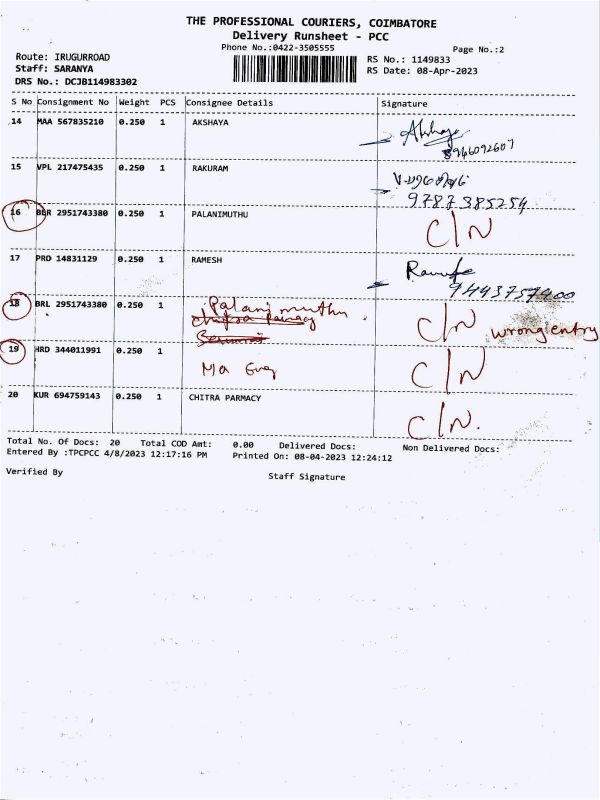 THE PROFESSIONAL COURIERS, COIMBATORE
Delivery Runsheet - PCC
Phone No.:0422-3505555 Page No.:2
Route: IRUGURROAD RS No.: 1149833
Staff: SARANYA RS Date: 08-Apr-2023
DRS No.: DCJB114983302
S No Consignment No Weight PCS Consignee Details Signature
14 MAA 567835210 0.250 1 AKSHAYA Akshaya
8946092607
15 VPL 217475435 0.250 1 RAKURAM
9787385254
16 BLR 2951743380 0.250 1 PALANIMUTHU C/N
17 PRD 14831129 0.250 1 RAMESH Ramesh
9443757400
18 BRL 2951743380 0.250 1 Palanimuthu C/N wrong entry
chitra Parmacy
19 HRD 344011991 0.250 1 Ma C/N
20 KUR 694759143 0.250 1 CHITRA PARMACY C/N.
Total No. Of Docs: 20 Total COD Amt: 0.00 Delivered Docs: Non Delivered Docs:
Entered By :TPCPCC 4/8/2023 12:17:16 PM Printed On: 08-04-2023 12:24:12
Verified By Staff Signature